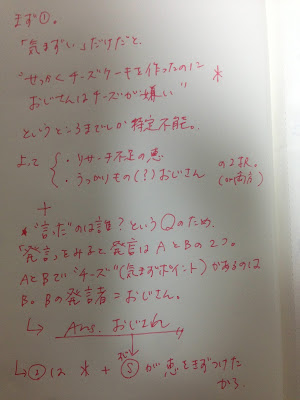 まず①。
「気まずい」だけだと、
"せっかくチーズケーキを作ったのに
おじさんはチーズが嫌い" *
というところまでしか特定不能。
よって { ・リサーチ不足の恵
・うっかりもの(?)おじさん の2択。(or両方)
+
* "言った"のは誰?というQのため、
「発言」をみると、発言はAとBの2つ。
AとBで"チーズ"(気まずポイント)があるのは
B。Bの発言者=おじさん。
↳ Ans. おじさん
↳ ②は * + Ⓢが恵をきずつけた
から。